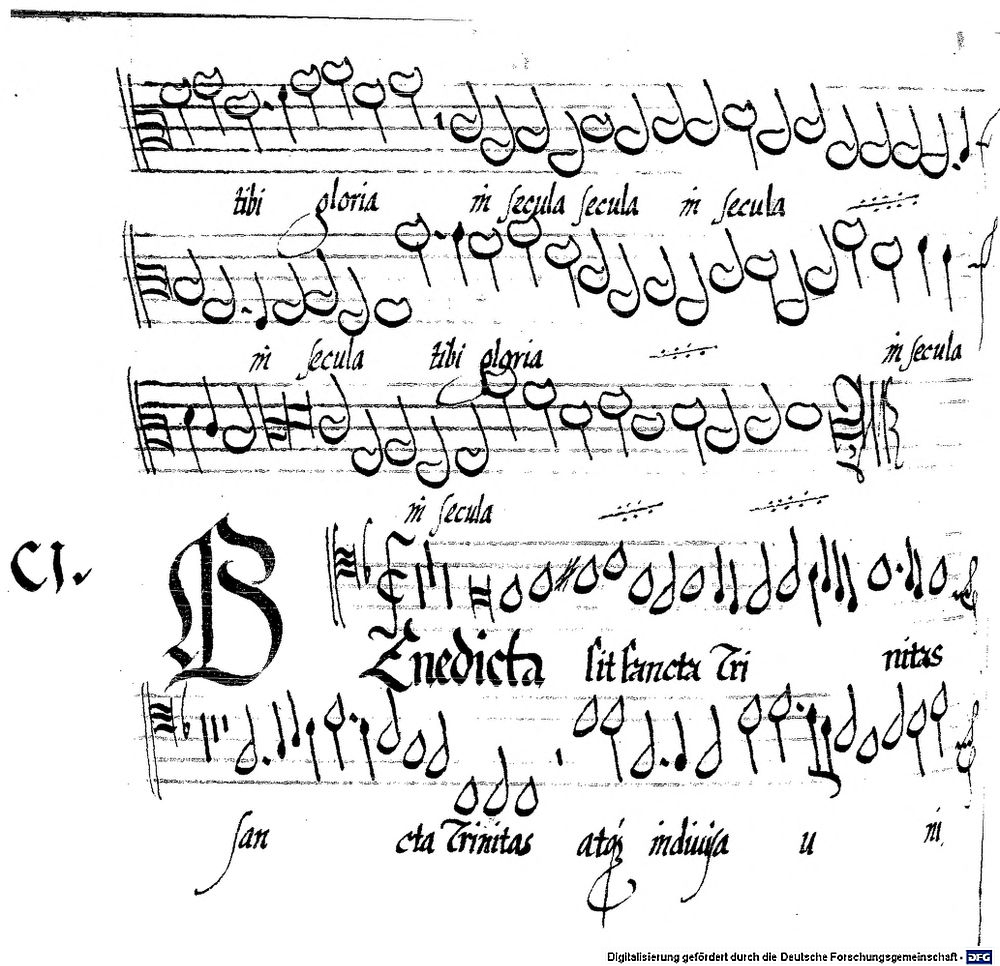 tibi gloria in secula secula in secula
in secula tibi gloria in secula
in secula
CI.
BEnedicta sit sancta Tri nitas
san cta Trinitas atq; indiuisa u ni
Digitalisierung gefördert durch die Deutsche Forschungsgemeinschaft - DFG